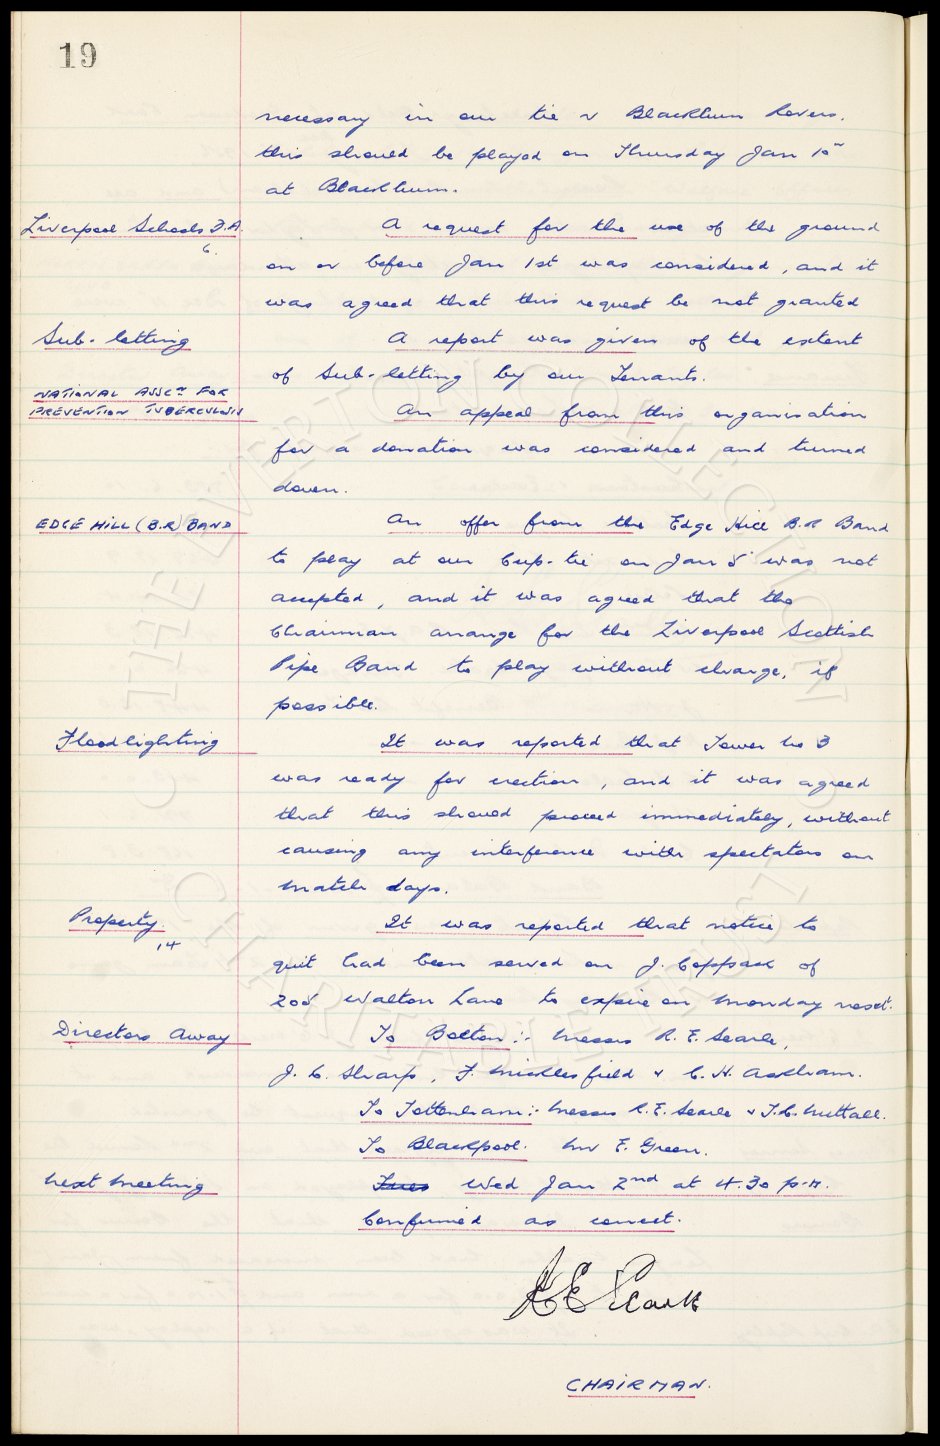 19
necessary in our tie v Blackburn Rovers,
this should be played on Thursday Jan 10th
at Blackburn.
Liverpool Schools F.A. A request for the use of the ground
6.
on or before Jan 1st was considered, and it
was agreed that this request be not granted
Sub-letting A report was given of the extent
of Sub-letting by our Tenants.
NATIONAL ASSCn FOR
PREVENTION TUBERCULOSIS An appeal from this organisation
for a donation was considered and turned
down.
EDGE HILL (B.R) BAND An offer from the Edge Hill B.R Band
to play at our Cup-tie on Jan 5 was not
accepted, and it was agreed that the
Chairman arrange for the Liverpool Scottish
Pipe Band to play without charge, if
possible.
Floodlighting It was reported that Tower No 3
was ready for erection, and it was agreed
that this should proceed immediately, without
causing any interference with spectators on
match days.
Property It was reported that notice to
14
quit had been served on J. Coppack of
205 Walton Lane to expire on Monday next.
Directors Away To Bolton :- Messrs R. E. Searle,
J. C. Sharp, F. Micklesfield & C. H. Askham.
To Tottenham :- Messrs R. E. Searle & T. C. Nuttall.
To Blackpool. Mr E. Green.
Next Meeting Tues Wed Jan 2nd at 4.30 p.m.
Confirmed as correct.
R E Searle
CHAIRMAN.
© THE EVERTON COLLECTION
CHARITABLE TRUST